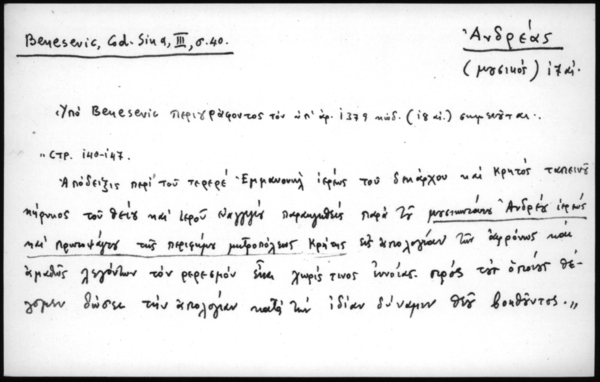 Benesevic, Cod. Sina, III, σ. 40.
Ἀνδρέας
(μουσικός) ι7 αἰ.
Ὑπό Benesevic περιγράφοντος τόν ὑπ' ἀρ. 1379 κώδ. (18 αἰ.) σημειοῦται.
"Στρ. 140-147.
Ἀπόδειξις περί τοῦ τερερέ Ἐμμανουήλ ἱερέως τοῦ δεκάρχου καί Κρητός ταπεινοῦ
κήρυκος τοῦ θείου καί ἱεροῦ εὐαγγελίου παρακινηθείς παρά τοῦ μουσικωτάτου Ἀνδρέου ἱερέως
καί πρωτοψάλτου τῆς περιφήμου μητροπόλεως Κρήτης εἰς ἀπολογίαν τῶν ἀφρόνως καί
ἀμαθῶς λεγόντων τόν τερερεσμόν εἶναι χωρίς τινος ἐννοίας. πρός τούς ὁποίους θέ-
λομεν δώσει τήν ἀπολογίαν κατά τήν ἰδίαν δύναμιν θεοῦ βοηθοῦντος."